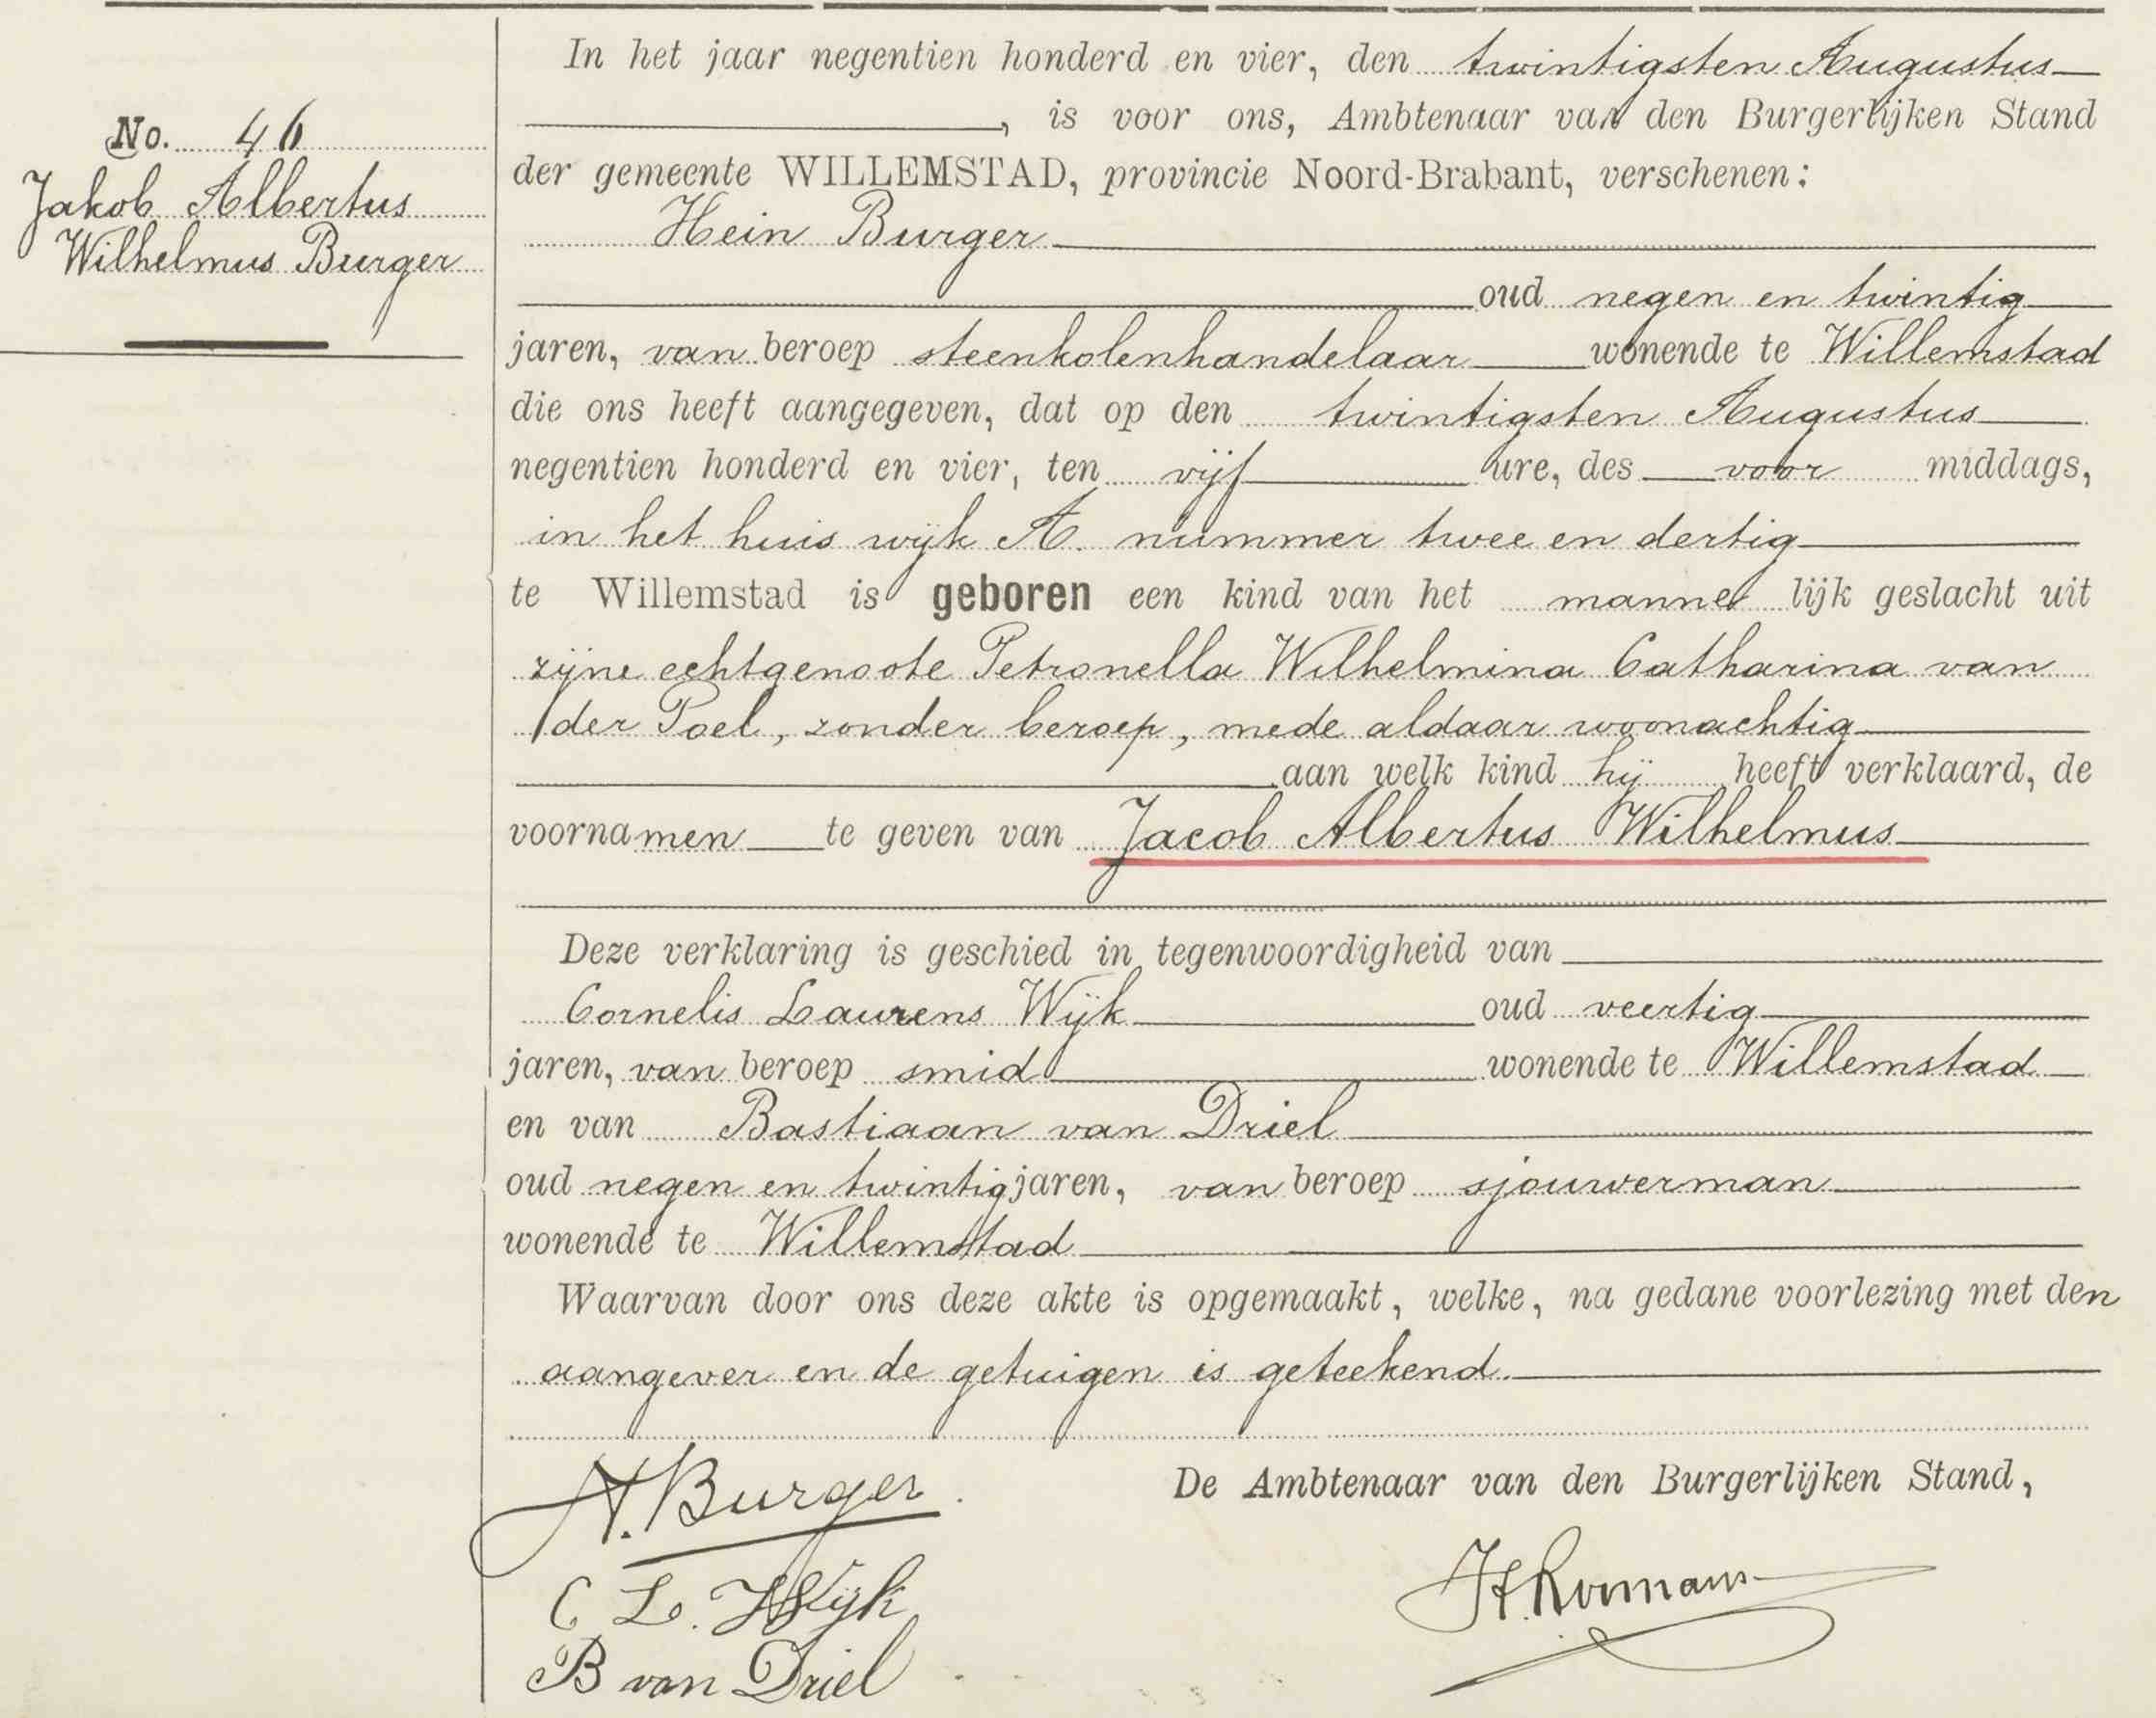 No. 46
Jakob Albertus
Wilhelmus Burger
In het jaar negentien honderd en vier, den twintigsten Augustus
, is voor ons, Ambtenaar van den Burgerlijken Stand
der gemeente WILLEMSTAD, provincie Noord-Brabant, verschenen:
Hein Burger
oud negen en twintig
jaren, van beroep steenkolenhandelaar wonende te Willemstad
die ons heeft aangegeven, dat op den twintigsten Augustus
negentien honderd en vier, ten vijf ure, des voor middags,
in het huis wijk A. nummer twee en dertig
te Willemstad is geboren een kind van het manne lijk geslacht uit
zijne echtgenoote Petronella Wilhelmina Catharina van
der Poel, zonder beroep, mede aldaar woonachtig
aan welk kind hij heeft verklaard, de
voornamen te geven van Jacob Albertus Wilhelmus
Deze verklaring is geschied in tegenwoordigheid van
Cornelis Laurens Wijk oud veertig
jaren, van beroep smid wonende te Willemstad
en van Bastiaan van Driel
oud negen en twintig jaren, van beroep sjouwerman
wonende te Willemstad
Waarvan door ons deze akte is opgemaakt, welke, na gedane voorlezing met den
aangever en de getuigen is geteekend.
H. Burger
De Ambtenaar van den Burgerlijken Stand,
C L. Wijk
B van Driel